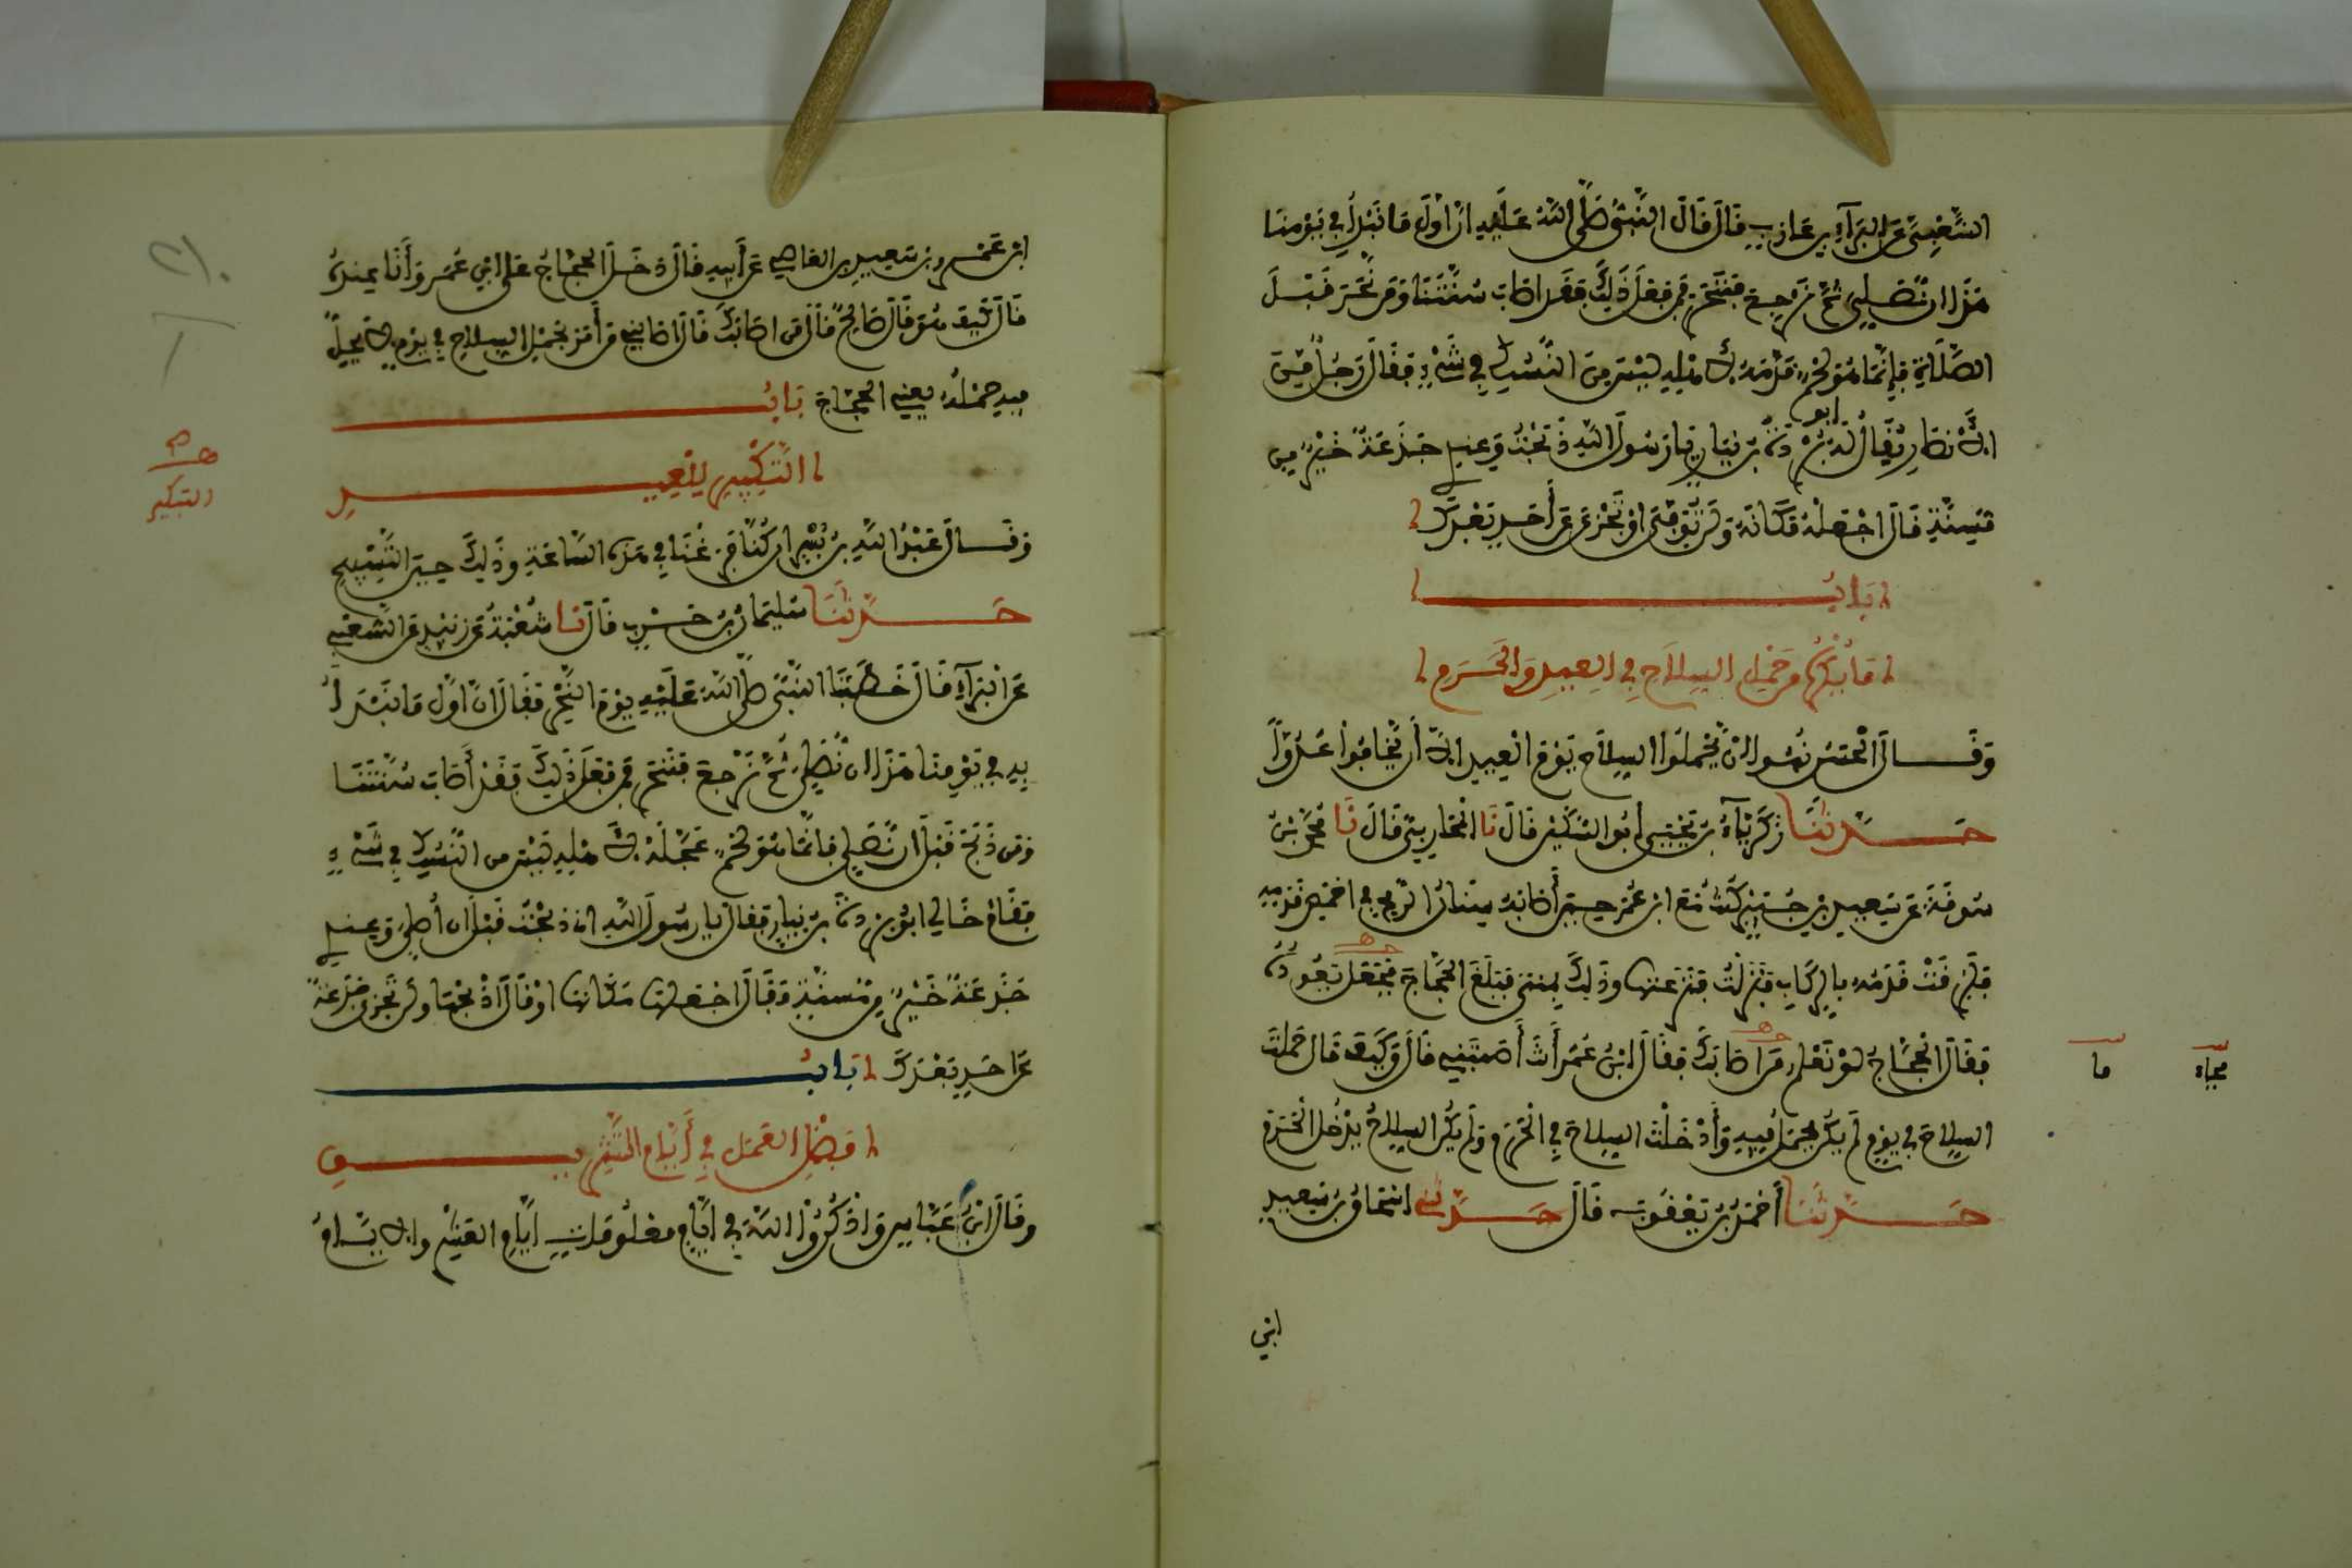 الشَّعْبِيَّ عَنِ الْبَرَآءِ بْنِ عَازِبٍ قَالَ قَالَ النَّبِيُّ صَلَّى اللَّهُ عَلَيْهِ إِنَّ أَوَّلَ مَا نَبْدَأُ فِي يَوْمِنَا
هَذَا أَنْ نُصَلِّيَ ثُمَّ نَرْجِعَ فَنَنْحَرَ فَمَنْ فَعَلَ ذَلِكَ فَقَدْ أَصَابَ سُنَّتَنَا وَمَنْ نَحَرَ قَبْلَ
الصَّلَاةِ فَإِنَّمَا هُوَ لَحْمٌ قَدَّمَهُ لِأَهْلِهِ لَيْسَ مِنَ النُّسُكِ فِي شَيْءٍ فَقَالَ رَجُلٌ مِنَ
الْأَنْصَارِ يُقَالُ لَهُ أبو بُرْدَةَ بْنُ نِيَارٍ يَا رَسُولَ اللَّهِ ذَبَحْتُ وَعِنْدِي جَذَعَةٌ خَيْرٌ مِنْ
مُسِنَّةٍ قَالَ اجْعَلْهُ مَكَانَهُ وَلَنْ تُوفِيَ أَوْ تَجْزِيَ عَنْ أَحَدٍ بَعْدَكَ
بَابُ
مَا يُكْرَهُ مِنْ حَمْلِ السِّلَاحِ فِي الْعِيدِ وَالْحَرَمِ
وَقَالَ الْحَسَنُ نُهُوا أَنْ يَحْمِلُوا السِّلَاحَ يَوْمَ الْعِيدِ إِلَّا أَنْ يَخَافُوا عَدُوًّا
حَدَّثَنَا زَكَرِيَّاءُ بْنُ يَحْيَى أَبُو السُّكَيْنِ قَالَ نَا الْمُحَارِبِيُّ قَالَ نَا مُحَمَّدُ بْنُ
سُوقَةَ عَنْ سَعِيدِ بْنِ جُبَيْرٍ كُنْتُ مَعَ ابْنِ عُمَرَ حِينَ أَصَابَهُ سِنَانُ الرُّمْحِ فِي أَخْمَصِ قَدَمِهِ
فَلَزِقَتْ قَدَمُهُ بِالرِّكَابِ فَنَزَلْتُ فَنَزَعْتُهَا وَذَلِكَ بِمِنًى فَبَلَغَ الْحَجَّاجَ فَجَعَلَ يَعُودُهُ
فَقَالَ الْحَجَّاجُ لَوْ نَعْلَمُ مَنْ أَصَابَكَ فَقَالَ ابْنُ عُمَرَ أَنْتَ أَصَبْتَنِي قَالَ وَكَيْفَ قَالَ حَمَلْتَ
فجاء
ما
السِّلَاحَ فِي يَوْمٍ لَمْ يَكُنْ يُحْمَلُ فِيهِ وَأَدْخَلْتَ السِّلَاحَ فِي الْحَرَمِ وَلَمْ يَكُنِ السِّلَاحُ يَدْخُلُ الْحَرَمَ
حَدَّثَنَا أَحْمَدُ بْنُ يَعْقُوبَ قَالَ حَدَّثَنِي إِسْحَاقُ بْنُ سَعِيدِ
ابن
ابْنِ عَمْرِو بْنِ سَعِيدِ بْنِ الْعَاصِي عَنْ أَبِيهِ قَالَ دَخَلَ الْحَجَّاجُ عَلَى ابْنِ عُمَرَ وَأَنَا عِنْدَهُ
قَالَ كَيْفَ هُوَ قَالَ صَالِحٌ قَالَ مَنْ أَصَابَكَ قَالَ أَصَابَنِي مَنْ أَمَرَ بِحَمْلِ السِّلَاحِ فِي يَوْمٍ لَا يَحِلُّ
فِيهِ حَمْلُهُ يَعْنِي الْحَجَّاجَ بَابُ
التَّكْبِيرِ لِلْعِيدِ
التبكير
وَقَالَ عَبْدُ اللَّهِ بْنُ بُسْرٍ إِنْ كُنَّا فَرَغْنَا فِي هَذِهِ السَّاعَةِ وَذَلِكَ حِينَ التَّسْبِيحِ
حَدَّثَنَا سُلَيْمَانُ بْنُ حَرْبٍ قَالَ نَا شُعْبَةُ عَنْ زُبَيْدٍ عَنِ الشَّعْبِيِّ
عَنِ الْبَرَآءِ قَالَ خَطَبَنَا النَّبِيُّ صَلَّى اللَّهُ عَلَيْهِ يَوْمَ النَّحْرِ فَقَالَ إِنَّ أَوَّلَ مَا نَبْدَأُ
بِهِ فِي يَوْمِنَا هَذَا أَنْ نُصَلِّيَ ثُمَّ نَرْجِعَ فَنَنْحَرَ فَمَنْ فَعَلَ ذَلِكَ فَقَدْ أَصَابَ سُنَّتَنَا
وَمَنْ ذَبَحَ قَبْلَ أَنْ نُصَلِّيَ فَإِنَّمَا هُوَ لَحْمٌ عَجَّلَهُ لِأَهْلِهِ لَيْسَ مِنَ النُّسُكِ فِي شَيْءٍ
فَقَامَ خَالِي أَبُو بُرْدَةَ بْنُ نِيَارٍ فَقَالَ يَا رَسُولَ اللَّهِ أَنَا ذَبَحْتُ قَبْلَ أَنْ أُصَلِّيَ وَعِنْدِي
جَذَعَةٌ خَيْرٌ مِنْ مُسِنَّةٍ فَقَالَ اجْعَلْهَا مَكَانَهَا أَوْ قَالَ اذْبَحْهَا وَلَنْ تَجْزِيَ جَذَعَةٌ
عَنْ أَحَدٍ بَعْدَكَ بَابُ
فَضْلِ الْعَمَلِ فِي أَيَّامِ التَّشْرِيقِ
وَقَالَ ابْنُ عَبَّاسٍ وَاذْكُرُوا اللَّهَ فِي أَيَّامٍ مَعْلُومَاتٍ أَيَّامُ الْعَشْرِ وَالْأَيَّامُ